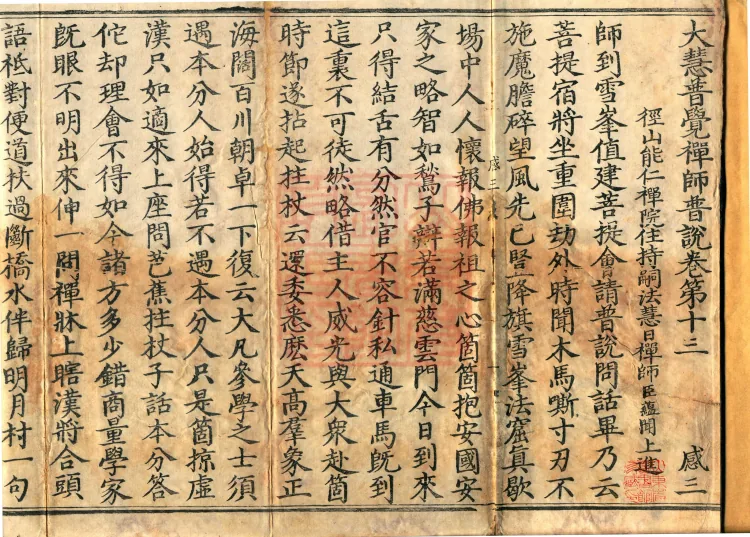 大慧普覺禪師普說卷第十三 感三
徑山能仁禪院住持嗣法慧日禪師臣蘊聞上進
師到雪峯值建菩提會請普說問話畢乃云
菩提宿將坐重圍劫外時聞木馬嘶寸刃不
施魔膽碎望風先已竪降旗雪峯法窟真歇
場中人人懷報佛報祖之心箇箇抱安國安
家之略智如鶖子辯若滿慈雲門今日到來
只得結舌有分然官不容針私通車馬旣到
這裏不可徒然略借主人威光與大衆赴箇
時節遂拈起拄杖云還委悉麽天高羣象正
海闊百川朝卓一下復云大凡參學之士須
遇本分人始得若不遇本分人只是箇掠虛
漢只如適來上座問芭蕉拄杖子話本分答
佗却理會不得如今諸方多少錯商量學家
旣眼不明出來伸一問禪牀上瞎漢將合頭
語祗對便道扶過斷橋水伴歸明月村一句